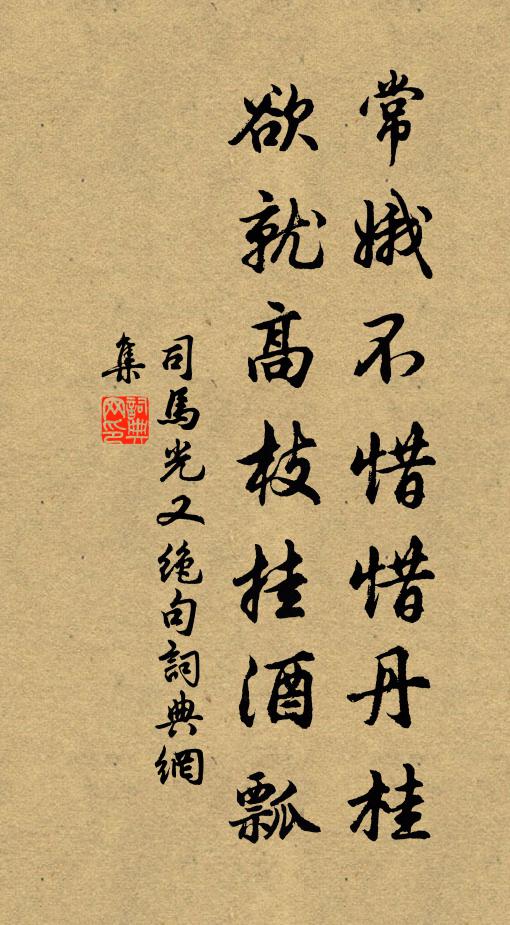 常娥不惜惜丹桂
欲就高枝挂酒瓢
司馬光又绝句詞典網
集
詞典網印